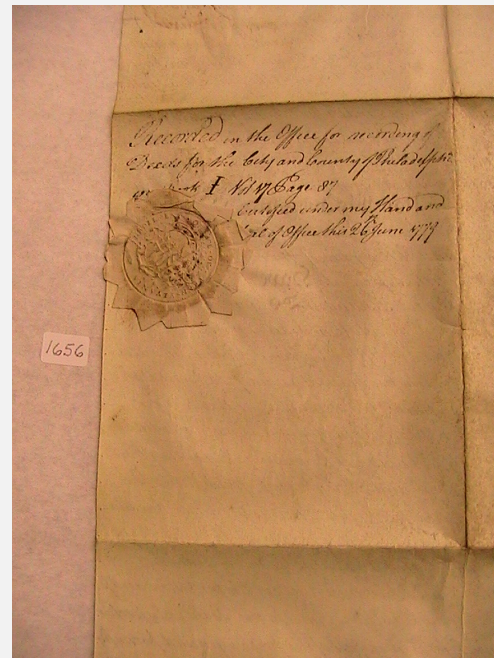 Recorded in the Office for recording of
Deeds for the City and County of Philadelphia
I Vol 17 Page 87
Certified under my Hand and
Seal of Office this 26 June
1656